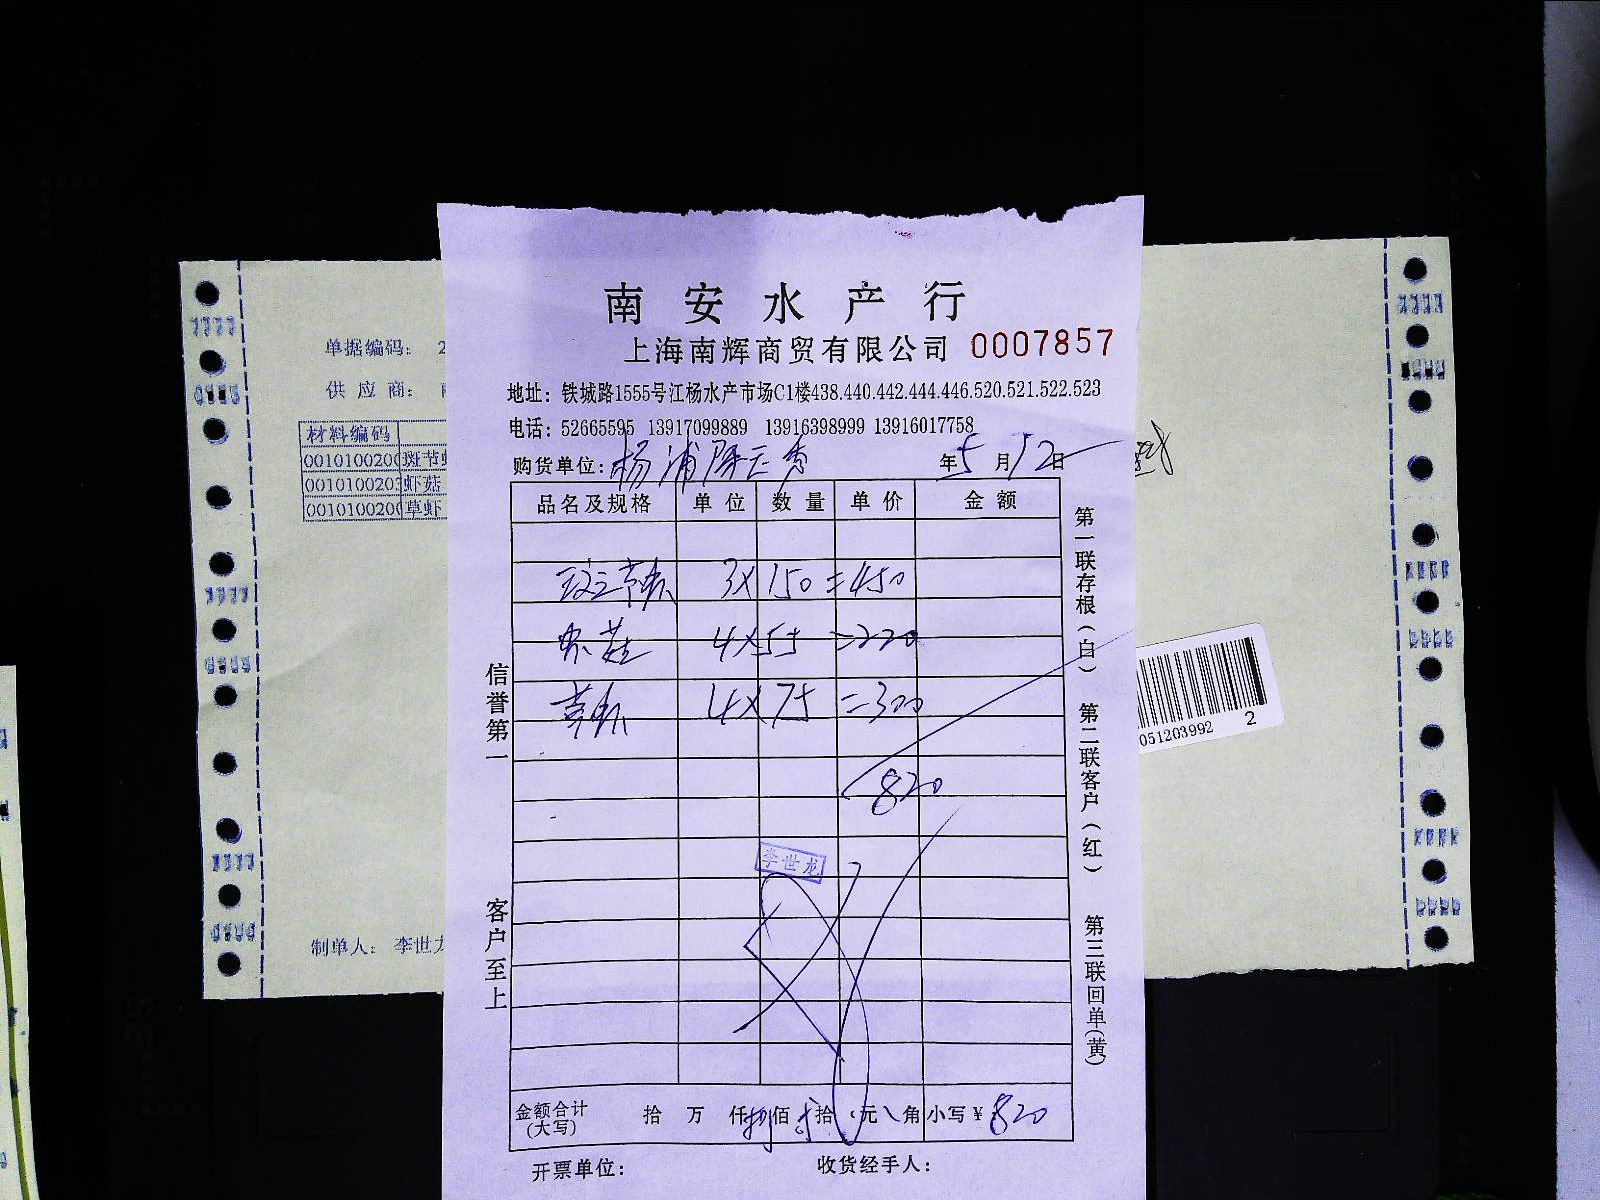 南安水产行
上海南辉商贸有限公司 0007857
地址：铁城路1555号江杨水产市场C1楼438.440.442.444.446.520.521.522.523
电话：52665595 13917099889 13916398999 13916017758
购货单位：杨浦 年5月12日
品名及规格 单位 数量 单价 金额
斑节虾 3×150=450
虾菇 4×55=220
草虾 4×75=300
820
李世龙
金额合计(大写) 拾 万 仟捌佰弍拾 元 角 小写¥820
开票单位： 收货经手人：
信誉第一
客户至上
第一联存根(白) 第二联客户(红) 第三联回单(黄)
单据编码： 2
供应商：
材料编码
0010100200 斑节虾
0010100203 虾菇
0010100200 草虾
制单人： 李世龙
051203992 2